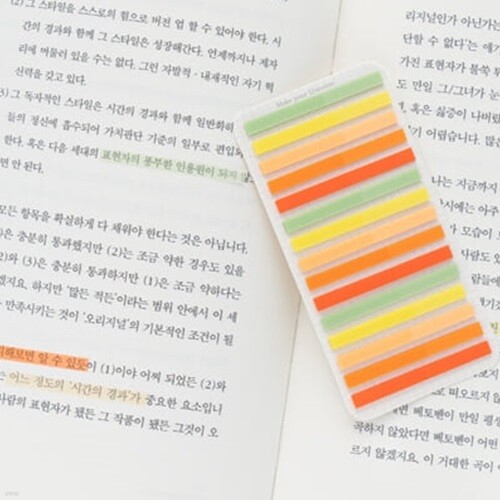 (2) 그 스타일을 스스로의 힘으로 버전 업 할 수 있어야 한다. 시
간의 경과와 함께 그 스타일은 성장해간다. 언제까지나 제자
리에 머물러 있을 수는 없다. 그런 자발적·내재적인 자기 혁
신력을 갖고 있다.
(3) 그 독자적인 스타일은 시간의 경과와 함께 일반화하
들의 정신에 흡수되어 가치판단 기준의 일부로 편입되
한다. 혹은 다음 세대의 표현자의 풍부한 인용원이 되지 않
면 안 된다.
모든 항목을 확실하게 다 채워야 한다는 것은 아닙니다.
은 충분히 통과했지만 (2)는 조금 약한 경우도 있을
2)와 (3)은 충분히 통과하지만 (1)은 조금 약하다는
겠지요. 하지만 '많든 적든'이라는 범위 안에서 이 세
만족시키는 것이 '오리지널'의 기본적인 조건이 될
해보면 알 수 있듯이 (1)이야 어찌 되었든 (2)와
는 어느 정도의 '시간의 경과'가 중요한 요소입니
사람의 표현자가 됐든 그 작품이 됐든 그것이 오
Make your Universe
리지널인가 아닌가는
단할 수 없다'는 얘기
가진 표현자가 불쑥
도 만일 그/그녀가 눈
혹은 싫증이 나버렸
어렵습니다. 많은
나는 지금까지
모습이
사람도 있
람들에
면 베토벤이 만일 평생
곡하지 않았다면 베토벤이 어떤
르지 않겠지요. 이 거대한 곡이